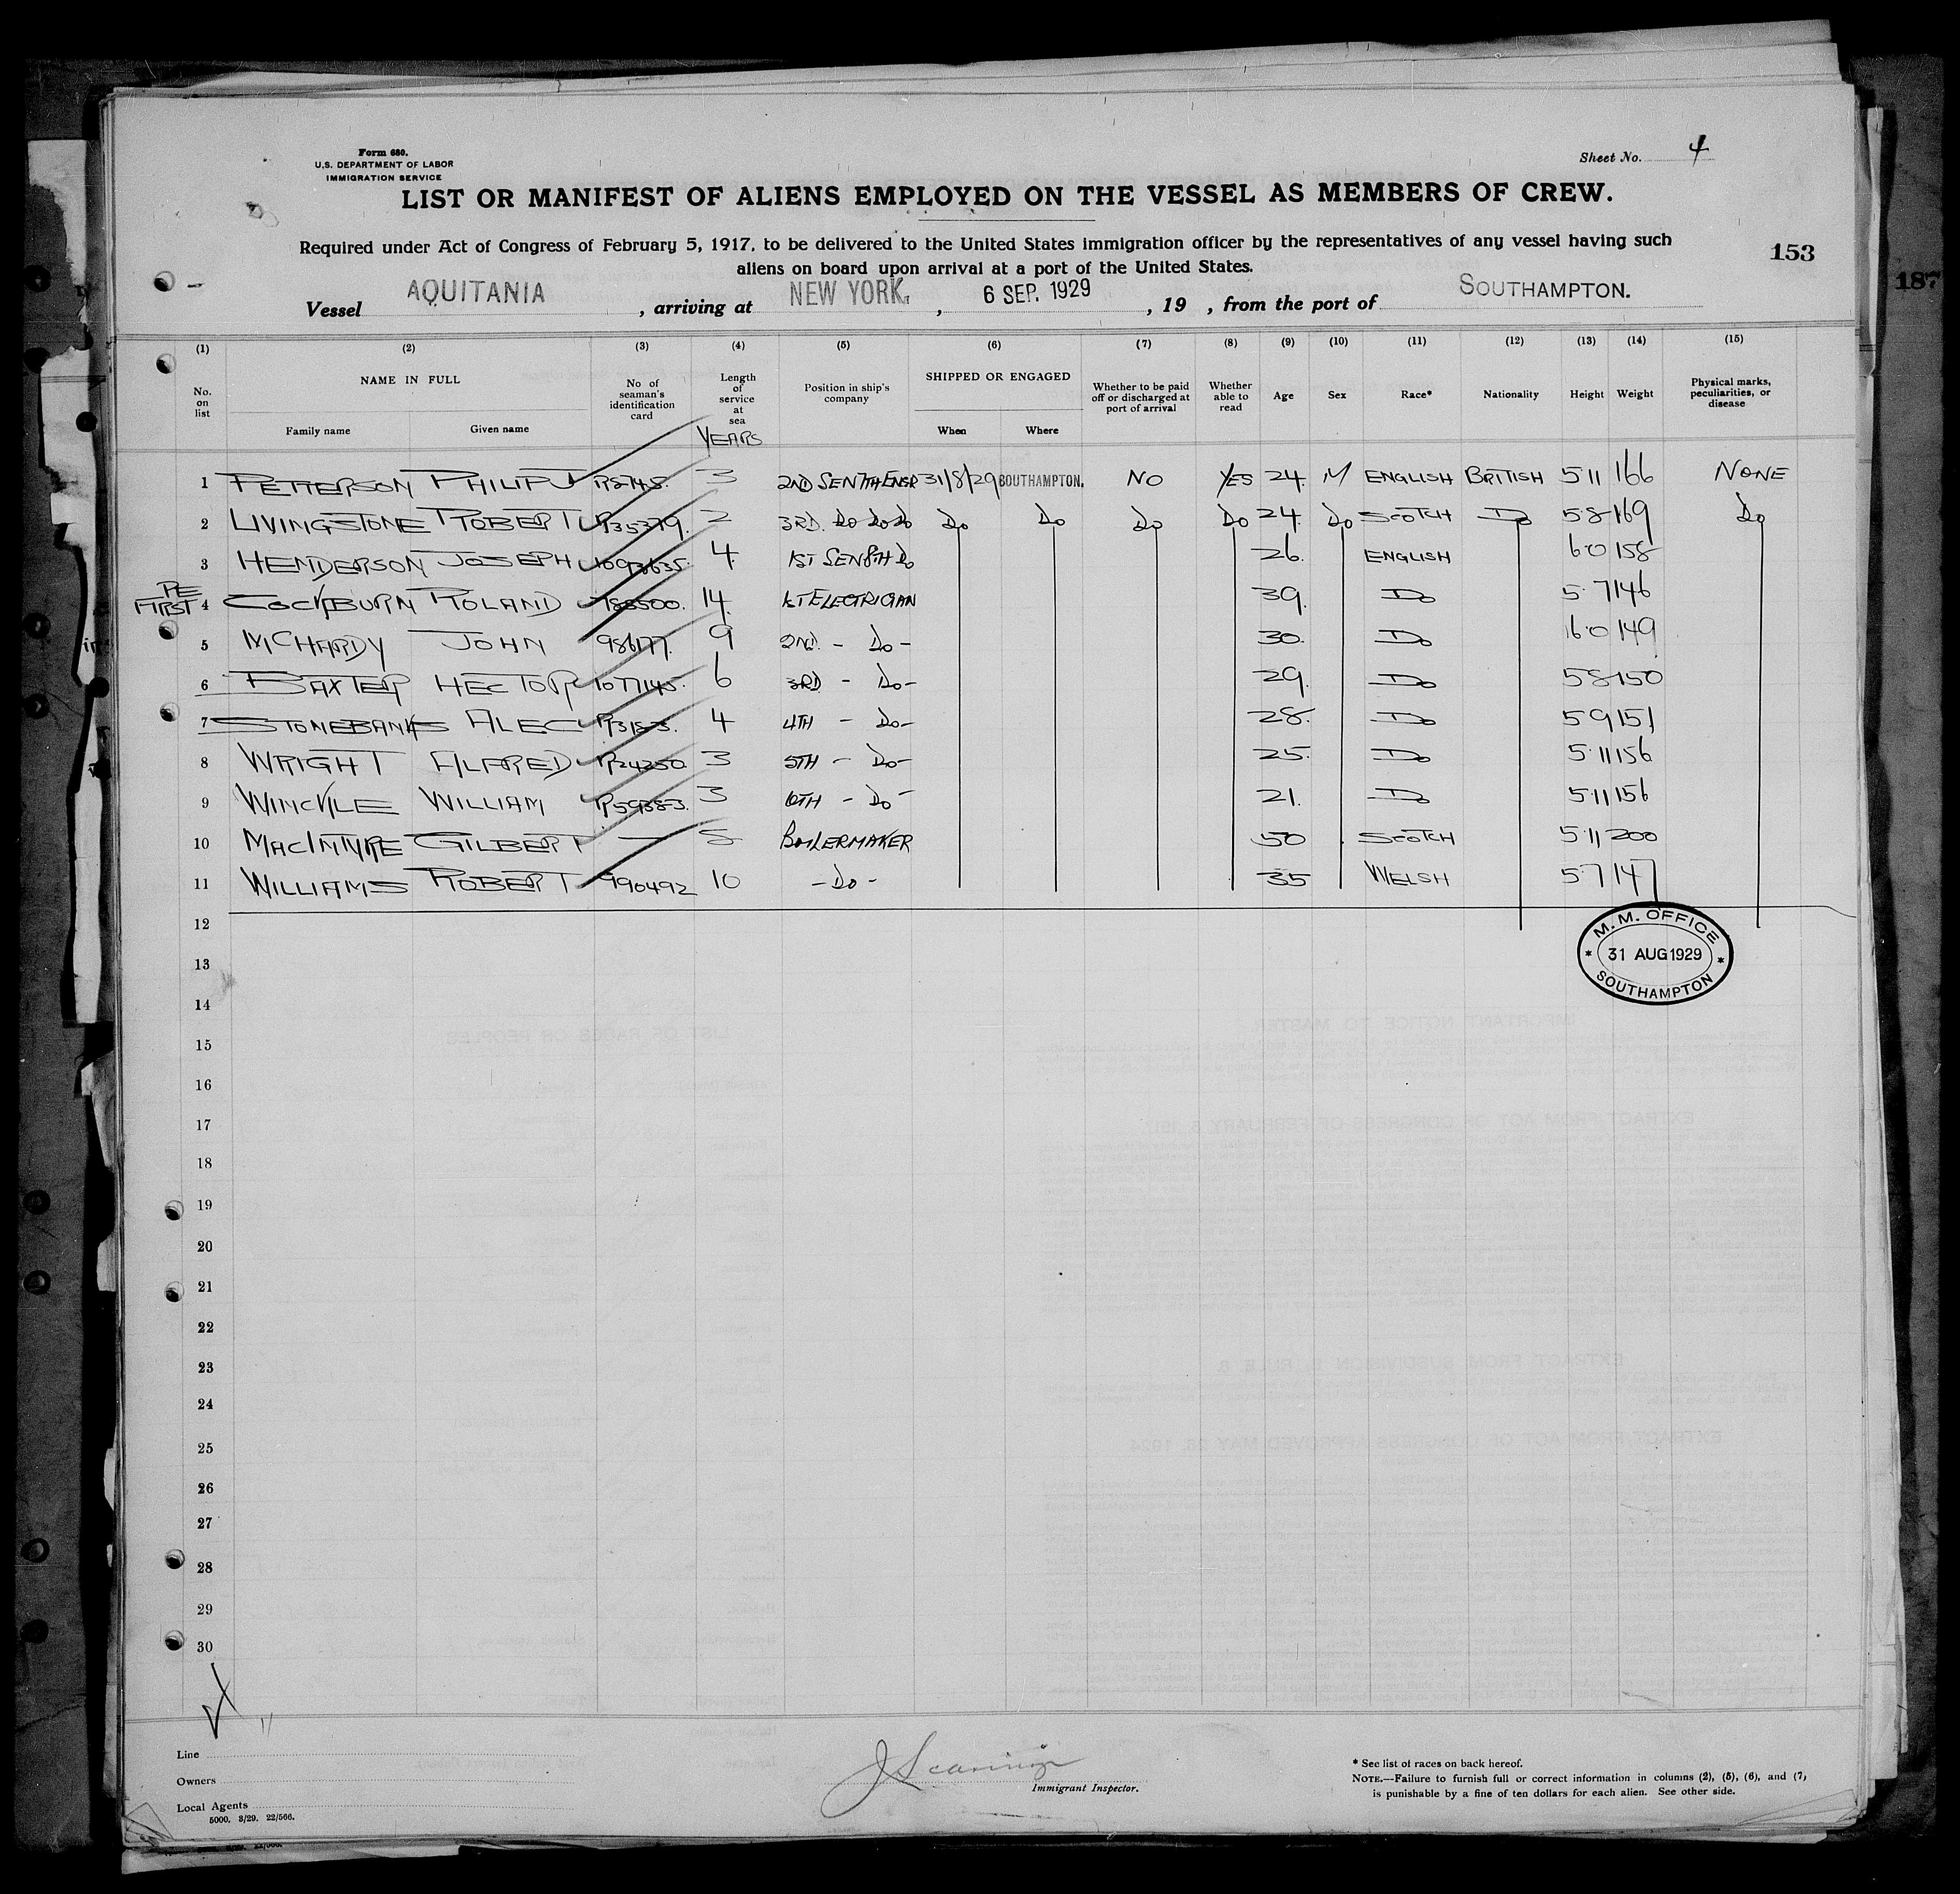 Form 680.
U.S. DEPARTMENT OF LABOR
IMMIGRATION SERVICE
Sheet No. 4
LIST OR MANIFEST OF ALIENS EMPLOYED ON THE VESSEL AS MEMBERS OF CREW.
Required under Act of Congress of February 5, 1917, to be delivered to the United States immigration officer by the representatives of any vessel having such
aliens on board upon arrival at a port of the United States.
153
187
Vessel AQUITANIA, arriving at NEW YORK, 6 SEP. 1929, 19 , from the port of SOUTHAMPTON.
(1) (2) (3) (4) (5) (6) (7) (8) (9) (10) (11) (12) (13) (14) (15)
No. on list NAME IN FULL Family name Given name No of seaman's identification card Length of service at sea YEARS Position in ship's company SHIPPED OR ENGAGED When Where Whether to be paid off or discharged at port of arrival Whether able to read Age Sex Race* Nationality Height Weight Physical marks, peculiarities, or disease
1 PETTERSON PHILIP J 3 2ND SEN 7TH ENGR 31/8/29 SOUTHAMPTON. NO YES 24. M ENGLISH BRITISH 5 11 166 NONE
2 LIVINGSTONE ROBERT P35379. 2 3RD. Do Do Do Do Do Do Do 24. Do SCOTCH Do 5 8 169 Do
3 HENDERSON JOSEPH 1093635. 4. 1ST SEN 8TH Do 26. ENGLISH 6 0 158
RE FIRST 4 COCKBURN ROLAND 788500. 14. 1ST ELECTRICIAN 39. Do 5 7 146
5 MCHARDY JOHN 986177. 9 2ND. - Do - 30. Do 6 0 149
6 BAXTER HECTOR 1077145. 6 3RD - Do - 29. Do 5 8 150
7 STONEBANKS ALEC P73183. 4 4TH - Do - 28. Do 5 9 151
8 WRIGHT ALFRED P24250 3 5TH - Do - 25. Do 5 11 156
9 WINCKLE WILLIAM P59383. 3 6TH - Do - 21. Do 5 11 156
10 MACINTYRE GILBERT — 5 BOILERMAKER 50 SCOTCH 5 11 200
11 WILLIAMS ROBERT 990492 10 - Do - 35 WELSH 5 7 147
12
M.M. OFFICE
31 AUG 1929
SOUTHAMPTON
13
14
15
16
17
18
19
20
21
22
23
24
25
26
27
28
29
30
11
Line
Owners
Local Agents
5000. 3/29. 22/566.
Immigrant Inspector.
* See list of races on back hereof.
NOTE.—Failure to furnish full or correct information in columns (2), (5), (6), and (7,
is punishable by a fine of ten dollars for each alien. See other side.